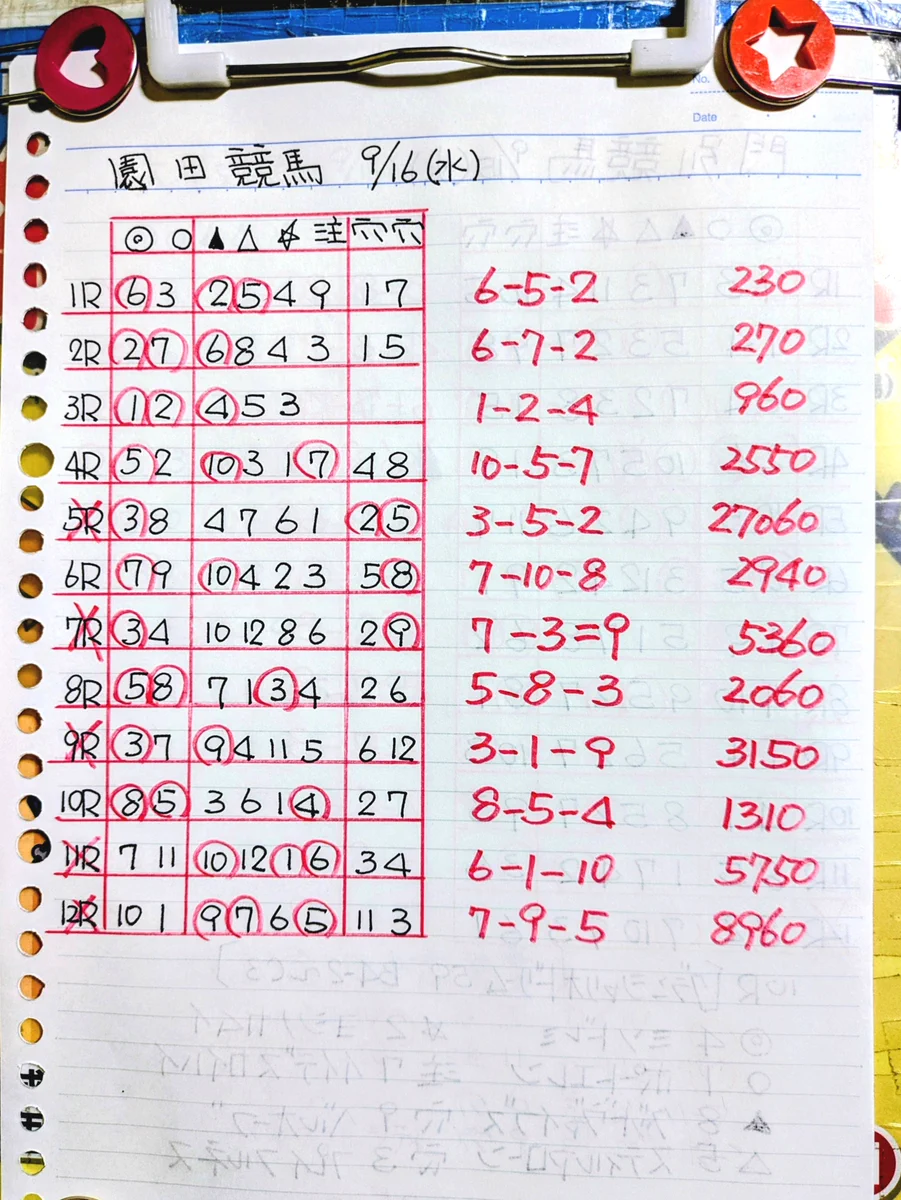 No.
Date
園田競馬 9/16(水)
◎ ○ ▲ △ ☆ 注 穴 穴
1R 6 3 2 5 4 9 1 7 6-5-2 230
2R 2 7 6 8 4 3 1 5 6-7-2 270
3R 1 2 4 5 3 1-2-4 960
4R 5 2 10 3 1 7 4 8 10-5-7 2550
5R 3 8 4 7 6 1 2 5 3-5-2 27060
6R 7 9 10 4 2 3 5 8 7-10-8 2940
7R 3 4 10 12 8 6 2 9 7-3=9 5360
8R 5 8 7 1 3 4 2 6 5-8-3 2060
9R 3 7 9 4 11 5 6 12 3-1-9 3150
10R 8 5 3 6 1 4 2 7 8-5-4 1310
11R 7 11 10 12 1 6 3 4 6-1-10 5750
12R 10 1 9 7 6 5 11 3 7-9-5 8960